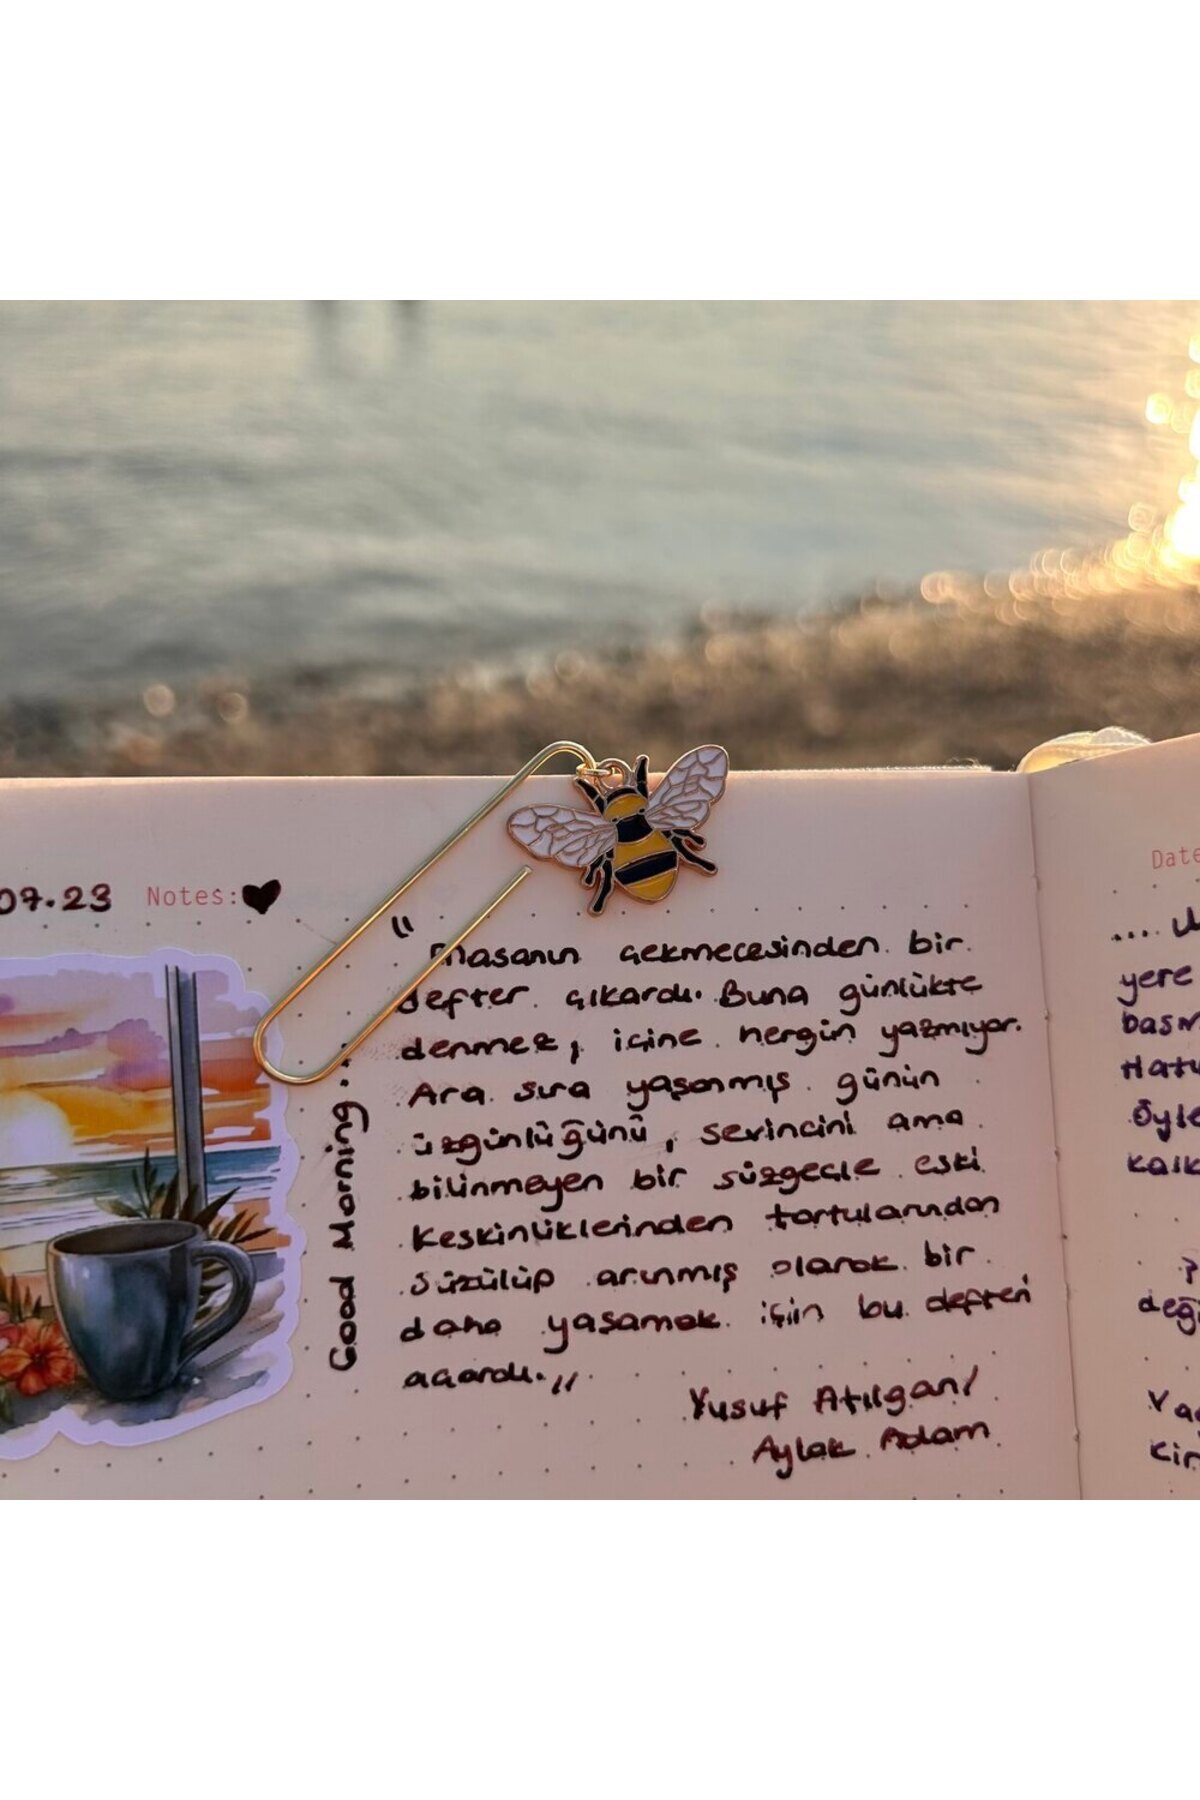 07.23 Notes:
"Masanın çekmecesinden bir
defter çıkardı. Buna günlükte
denmez, içine hergün yazmıyor.
Ara sıra yaşanmış günün
üzgünlüğünü, sevincini ama
bilinmeyen bir süzgeçle eski
keskinliklerinden tortularından
süzülüp arınmış olarak bir
daha yaşamak için bu defteri
açardı."
Yusuf Atılgan/
Aylak Adam
Good Morning...
Date
....
yere
basm
Hatı
Öyle
kalk
değ
kir